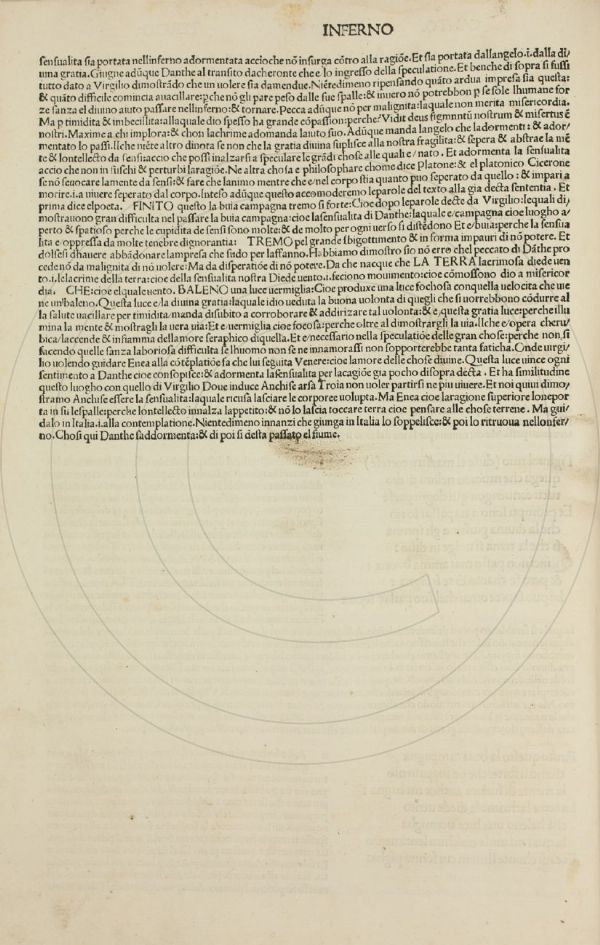 INFERNO
sensualita sia portata nellinferno adormentata accioche nõ insurga cõtro alla ragiõe. Et sia portata dallangelo.i.dalla di/
uina gratia. Giugne adũque Danthe al transito dacheronte che e lo ingresso della speculatione. Et benche di sopra si fussi
tutto dato a Virgilio dimostrãdo che un uolere sia damendue. Niẽtedimeno ripensando quãto ardua impresa sia questa:
& quãto difficile comincia auacillare: pche nõ gli pare peso dalle sue spalle: & in uero nõ potrebbon p se sole lhumane for
ze sanza el diuino aiuto passare nellinferno: & tornare. Pecca adũque nõ per malignita: laquale non merita misericordia.
Ma p timidita & imbecillita: alla quale dio spesso ha grande cõpassion: perche Vidit deus figmẽntũ nostrum & misertus ẽ
nostri. Maxime a chi implora: & chon lachrime adomanda laiuto suo. Adũque manda langelo che ladormenti: & ador/
mentato lo passi. Ilche niẽte altro dinota se non che la gratia diuina suplisce alla nostra fragilita: & sepera & abstrae la mẽ
te & lontellecto da sensi accio che possi inalzarsi a speculare le grãdi chose alle quali e/ nato. Et adormenta la sensualita
accio che non infuschi & perturbi laragiõe. Ne altra chosa e philosophare chome dice Platone: & el platonico Cicerone
se nõ seuocare lamente da sensi: & fare che lanimo mentre che e/ nel corpo stia quanto puo seperato da quello: & impari a
morire.i.a uiuere seperato dal corpo. Inteso adũque questo accomoderemo leparole del texto alla gia decta sententia. Et
prima dice elpoeta. FINITO questo la buia campagna tremo si forte: Cioe dopo leparole decte da Virgilio: lequali di/
mostrauono gran difficulta nel passare la buia campagna: cioe la sensualita di Danthe: laquale e/ campagna cioe luogho a/
perto & spatioso perche le cupidita de sensi sono molte: & de molto per ogni uerso si distẽdono Et e/ buia: perche la sensua
lita e oppressa da molte tenebre dignorantia: TREMO pel grande sbigottimento & in forma impauri di nõ potere. Et
dolsesi dhauere abbãdonare lampresa che sudo per laffanno. Habbiamo dimostro sio nõ erro chel peccato di Dãthe pro
cede nõ da malignita di nõ uolere: Ma da disperatiõe di nõ potere. Da che nacque che LA TERRA lacrimosa diede uen
to.i.lelacrime della terra: cioe della sensualita nostra Diede uento.i.feciono mouimento: cioe cõmossono dio a misericor
dia. CHE: cioe elquale uento. BALENO una luce uermiglia: Cioe produxe una luce fochosa con quella uelocita che uie
ne un baleno. Questa luce e/ la diuina gratia: laquale idio ueduta la buona uolonta di quegli che si uorrebbono cõdurre al
la salute uacillare per timidita/ manda disubito a corroborare & addirizare tal uolonta: & e/ questa gratia luce: perche illu
mina la mente & mostragli la uera uia: Et e/ uermiglia cioe focosa: perche oltre al dimostrargli la uia. Ilche e/ opera cheru/
bica/ laccende & infiamma dellamore seraphico diquella. Et e/ necessario nella speculatiõe delle gran chose: perche non si
facendo quelle sanza laboriosa difficulta se lhuomo non se ne innamorassi non sopporterebbe tanta faticha. Onde uirgi/
lio uolendo guidare Enea alla cõtẽplatiõe fa che lui seguita Venere cioe lamore delle chose diuine. Questa luce uince ogni
sentimento a Danthe cioe consopisce: & adormenta la sensualita per lacagiõe gia pocho disopra decta. Et ha similitudine
questo luogho con quello di Virgilio Doue induce Anchise arsa Troia non uoler partirsi ne piu uiuere. Et noi quiui dimo/
stramo Anchise essere la sensualita: laquale ricusa lasciare le corporee uolupta. Ma Enea cioe laragione superiore lonepor
ta in su lespalle: perche lontellecto innalza lappetito: & nõ lo lascia toccare terra cioe pensare alle chose terrene. Ma gui/
dalo in Italia.i.alla contemplatione. Nientedimeno innanzi che giunga in Italia lo soppelisce: & poi lo ritruoua nellonfer/
no. Chosi qui Danthe saddormenta: & di poi si desta passato el fiume.